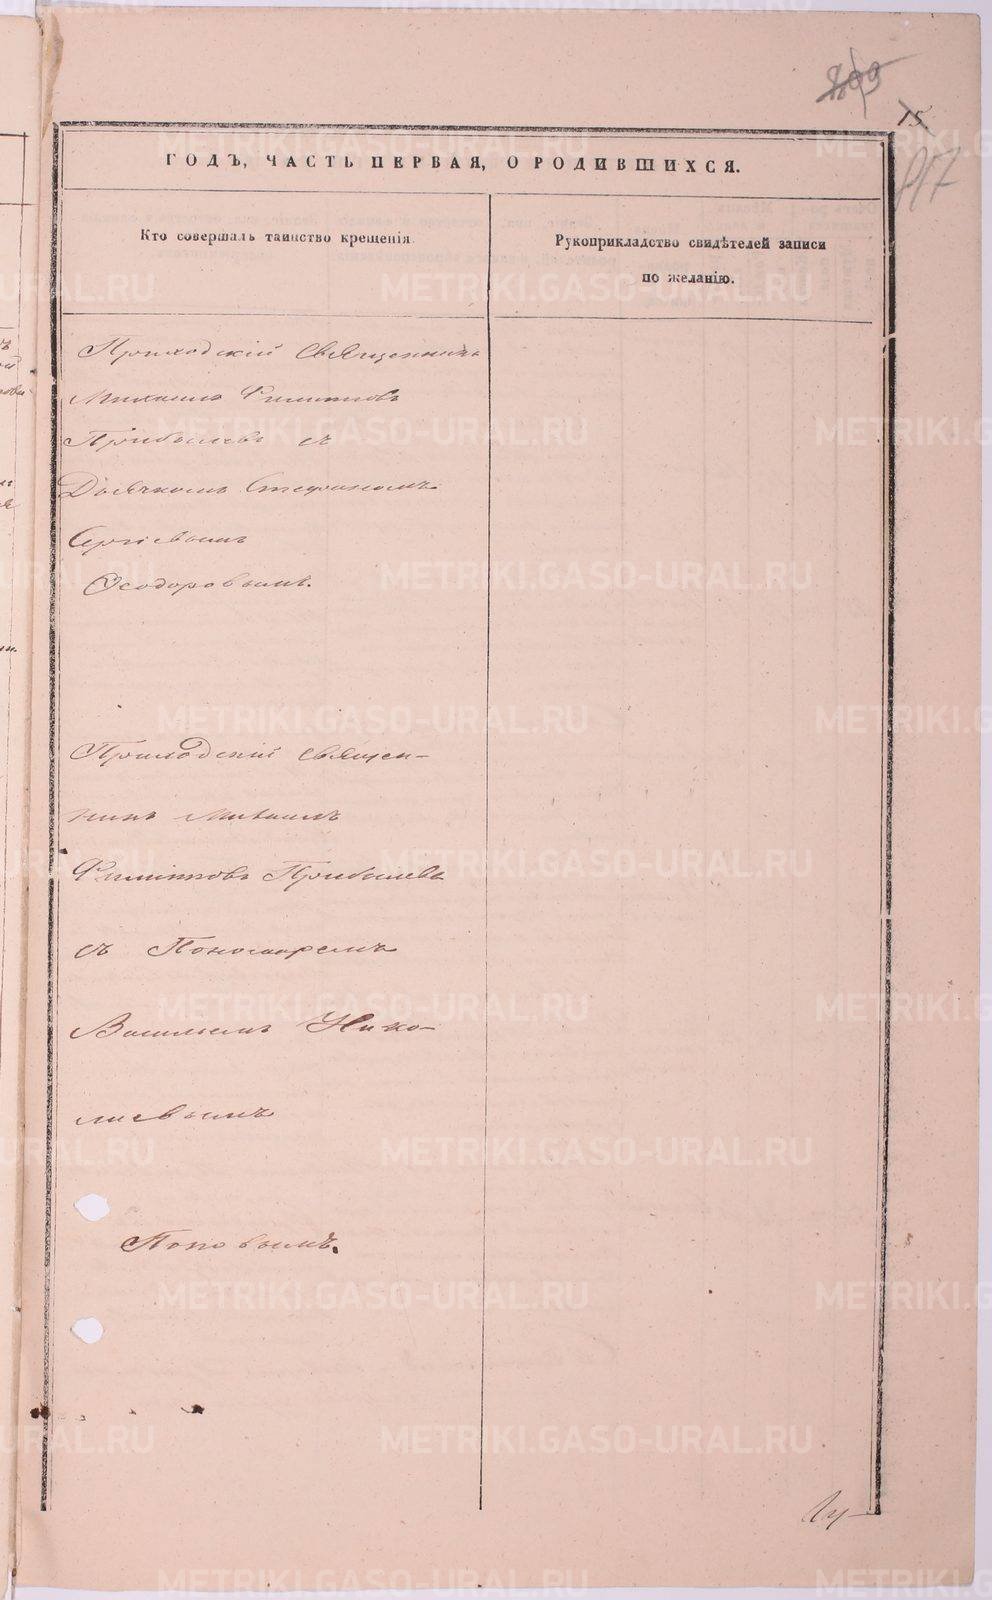 15
817
ГОДЪ, ЧАСТЬ ПЕРВАЯ, О РОДИВШИХСЯ.
Кто совершалъ таинство крещенія.
Рукоприкладство свидѣтелей записи
по желанію.
Приходскій Священникъ
Михаилъ Филиповъ
Прибылевъ съ
Дьячкомъ Стефаномъ
Сергіевымъ
Ѳеодоровымъ.
Приходскій Священ-
никъ Михаилъ
Филиповъ Прибылевъ
съ Пономаремъ
Василіемъ Нико-
лаевымъ
Поповымъ.
METRIKI.GASO-URAL.RU